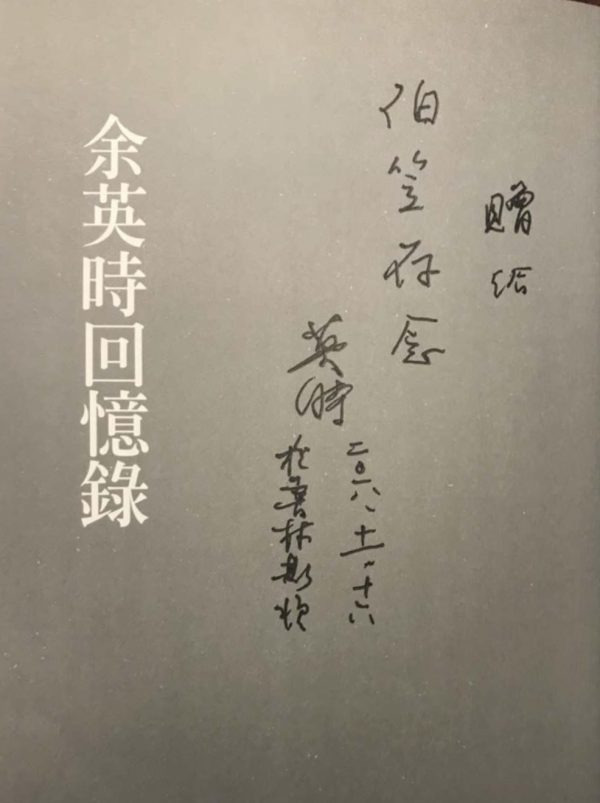 贈給
伯笠存念
英時
二〇一八、十一、十六
於普林斯頓
余英時回憶錄